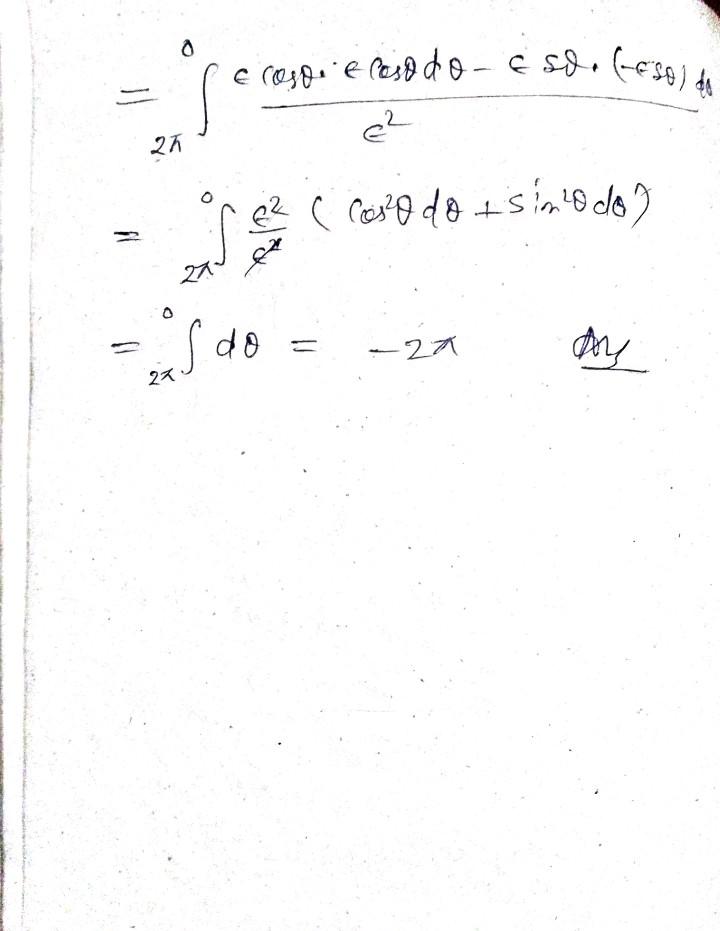 = ∫_{2π}^{0} (ϵ cosθ. ϵ cosθ dθ - ϵ sθ. (-ϵ sθ) dθ) / ϵ²
= ∫_{2π}^{0} ϵ²/ϵ² (cos²θ dθ + sin²θ dθ)
= ∫_{2π}^{0} dθ = -2π Ans